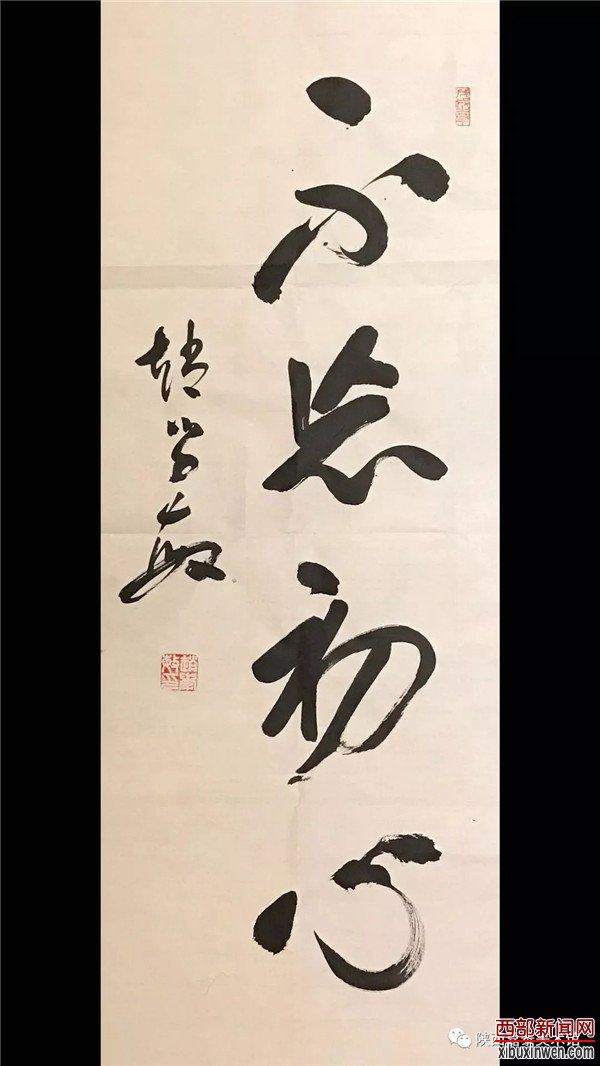 不忘初心
趙学敏
趙學敏印
陕西
西部新闻网
xibuxinwen.com